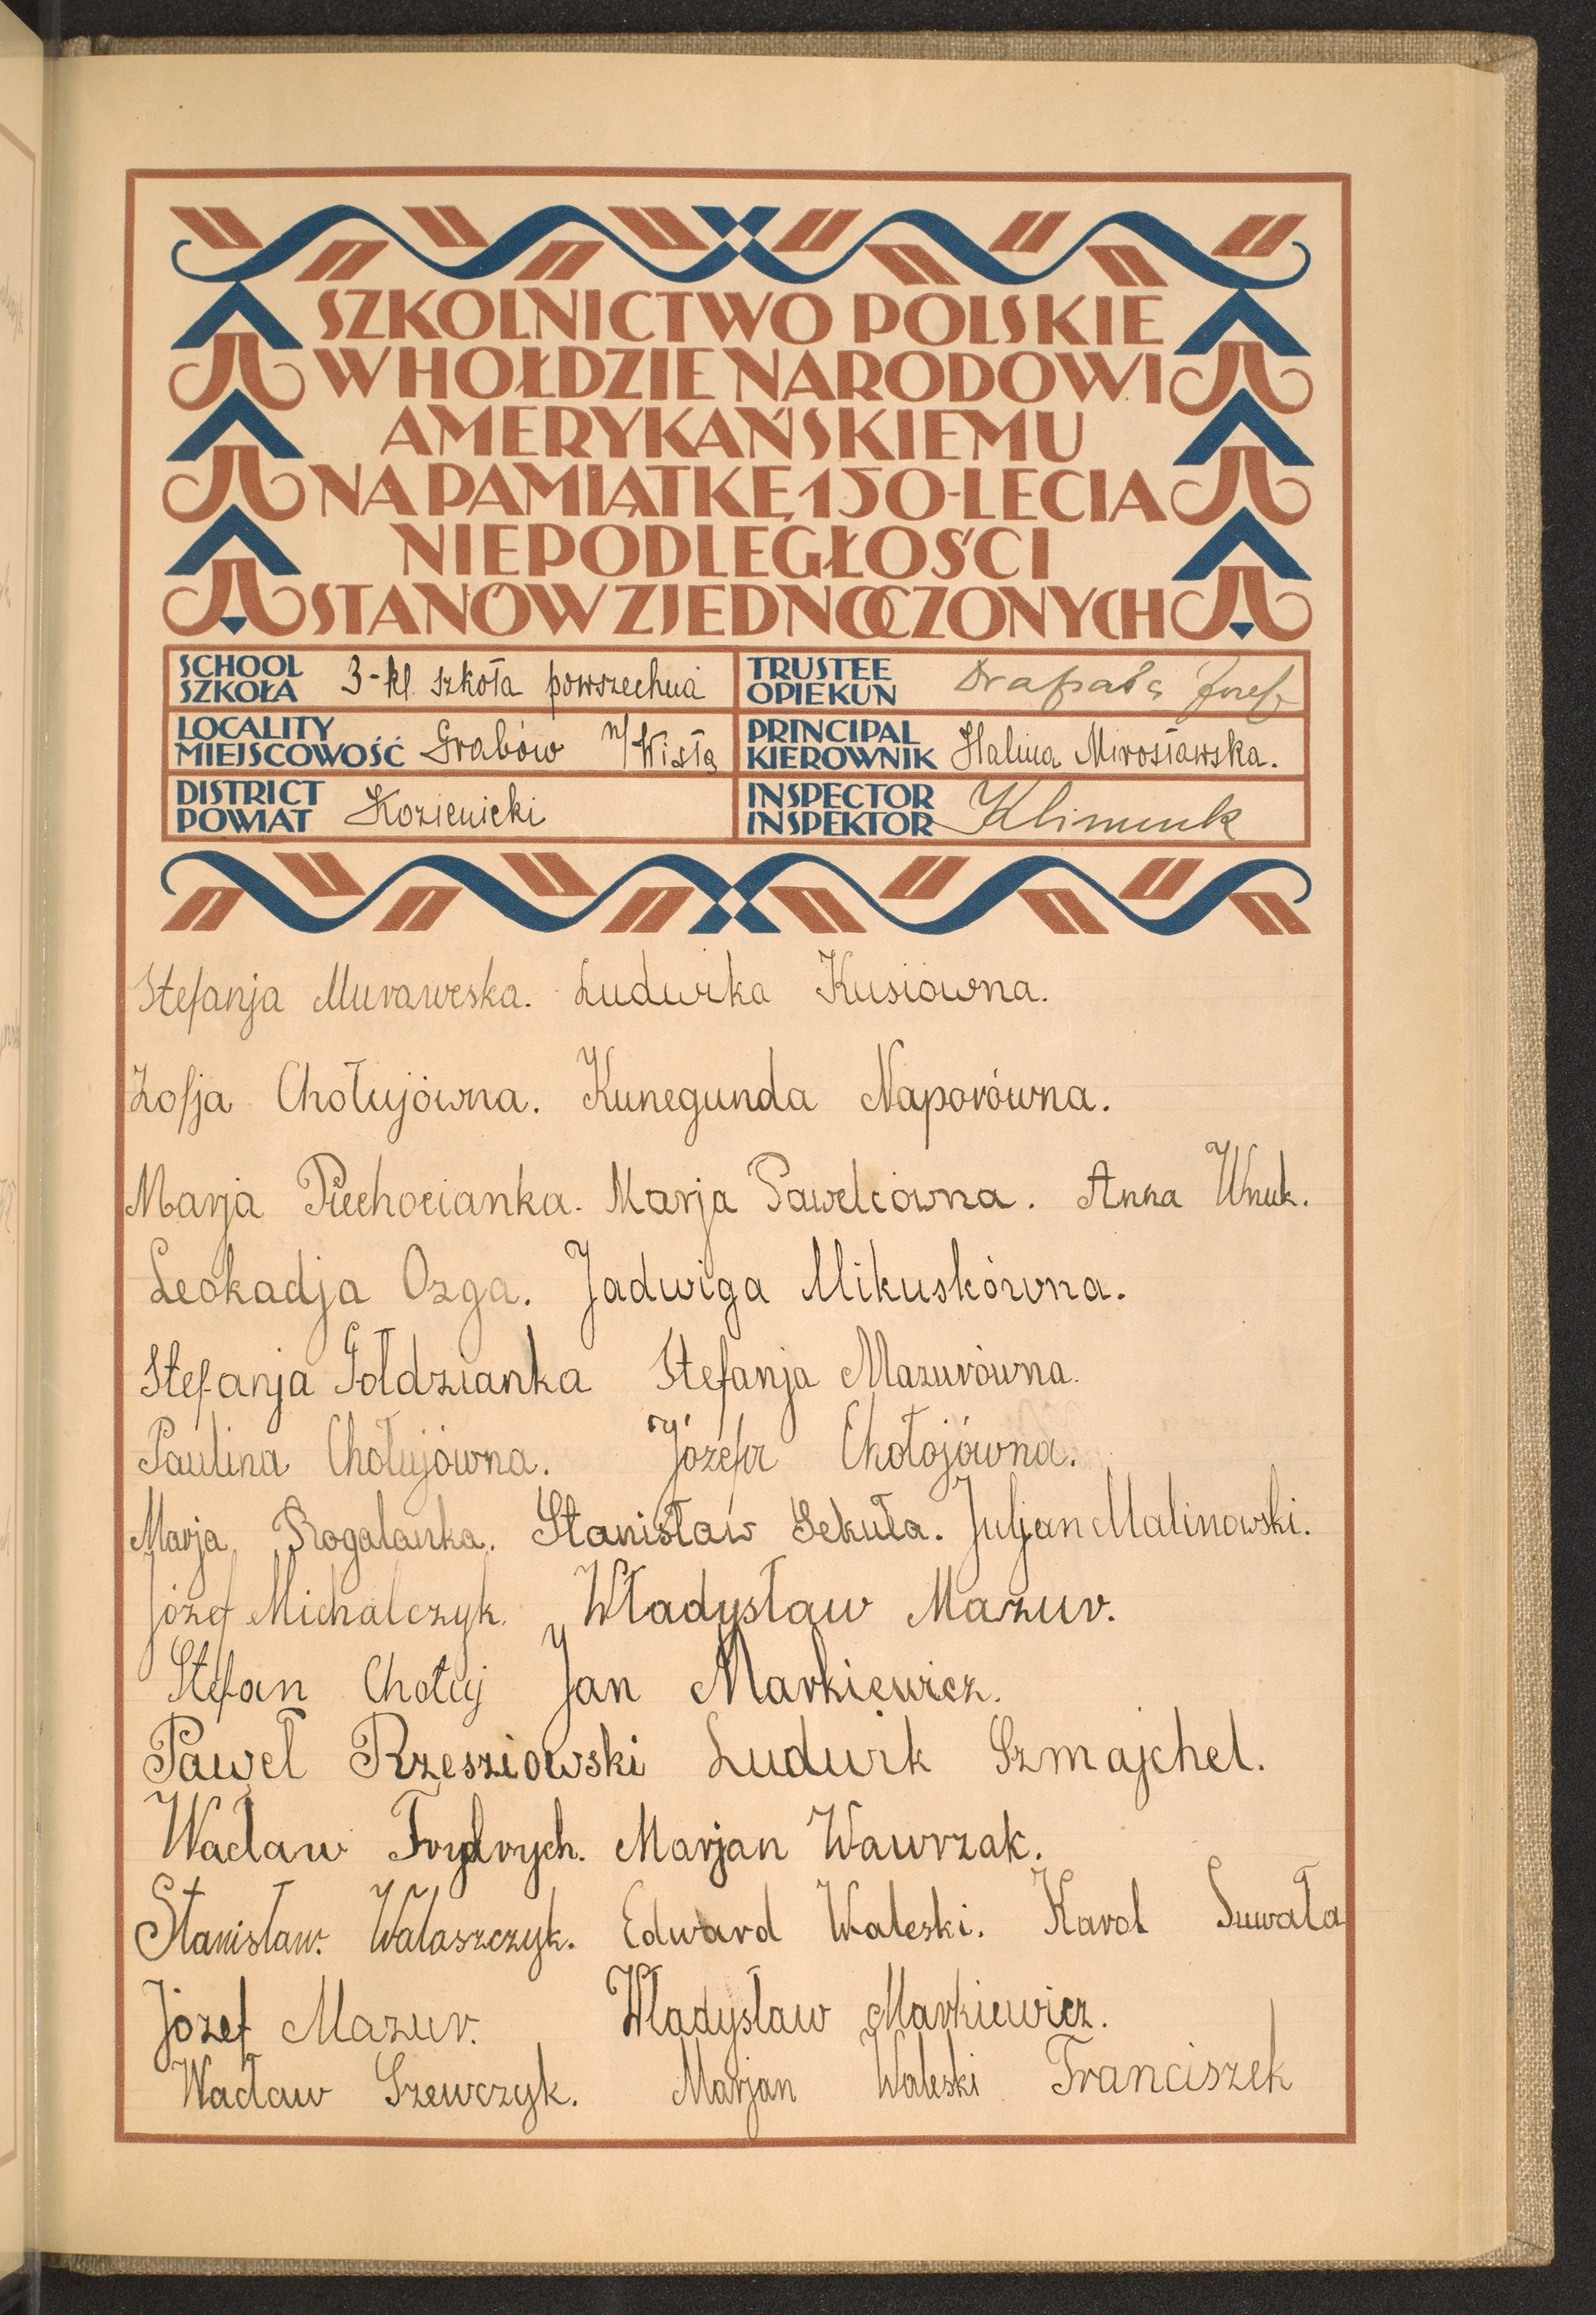 SZKOLNICTWO POLSKIE
W HOŁDZIE NARODOWI
AMERYKAŃSKIEMU
NA PAMIĄTKĘ 150-LECIA
NIEPODLEGŁOŚCI
STANÓW ZJEDNOCZONYCH
SCHOOL
SZKOŁA 3-kl szkoła powszechna
TRUSTEE
OPIEKUN Drapała Józef
LOCALITY
MIEJSCOWOŚĆ Grabów n/Wisłą
PRINCIPAL
KIEROWNIK Halina Mirosławska.
DISTRICT
POWIAT Kozienicki
INSPECTOR
INSPEKTOR Klimuk
Stefanja Murawska. Ludwika Kusiówna.
Zofja Chołujówna. Kunegunda Naporówna.
Marja Piechocianka. Marja Pawelcówna. Anna Wnuk.
Leokadja Ozga. Jadwiga Mikuskówna.
Stefanja Gołdzianka Stefanja Mazurówna.
Paulina Chołujówna. Józefa Chołojówna.
Marja Rogalanka. Stanisław Sekuła. Juljan Malinowski.
Józef Michalczyk. Władysław Mazur.
Stefan Chołuj Jan Markiewicz.
Paweł Rzesziowski Ludwik Szmajchel.
Wacław Frydrych. Marjan Wawrzak.
Stanisław. Walaszczyk. Edward Waleski. Karol Suwała
Józef Mazur. Władysław Markiewicz.
Wacław Szewczyk. Marjan Waleski Franciszek